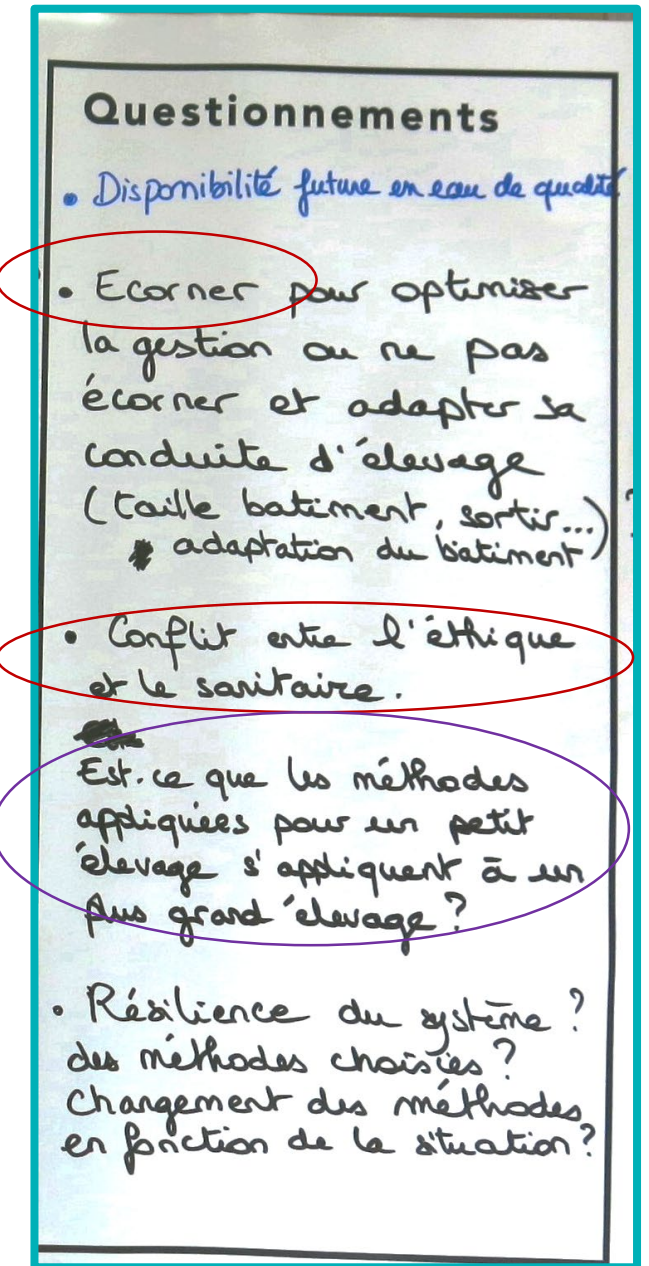 Questionnements
• Disponibilité future en eau de qualité
• Ecorner pour optimiser
la gestion ou ne pas
écorner et adapter sa
conduite d'élevage
(taille batiment, sortir...) ?
adaptation du bâtiment
• Conflit entre l'éthique
et le sanitaire.
Est-ce que les méthodes
appliquées pour un petit
élevage s'appliquent à un
plus grand élevage ?
• Résilience du système ?
des méthodes choisies ?
Changement des méthodes
en fonction de la situation ?